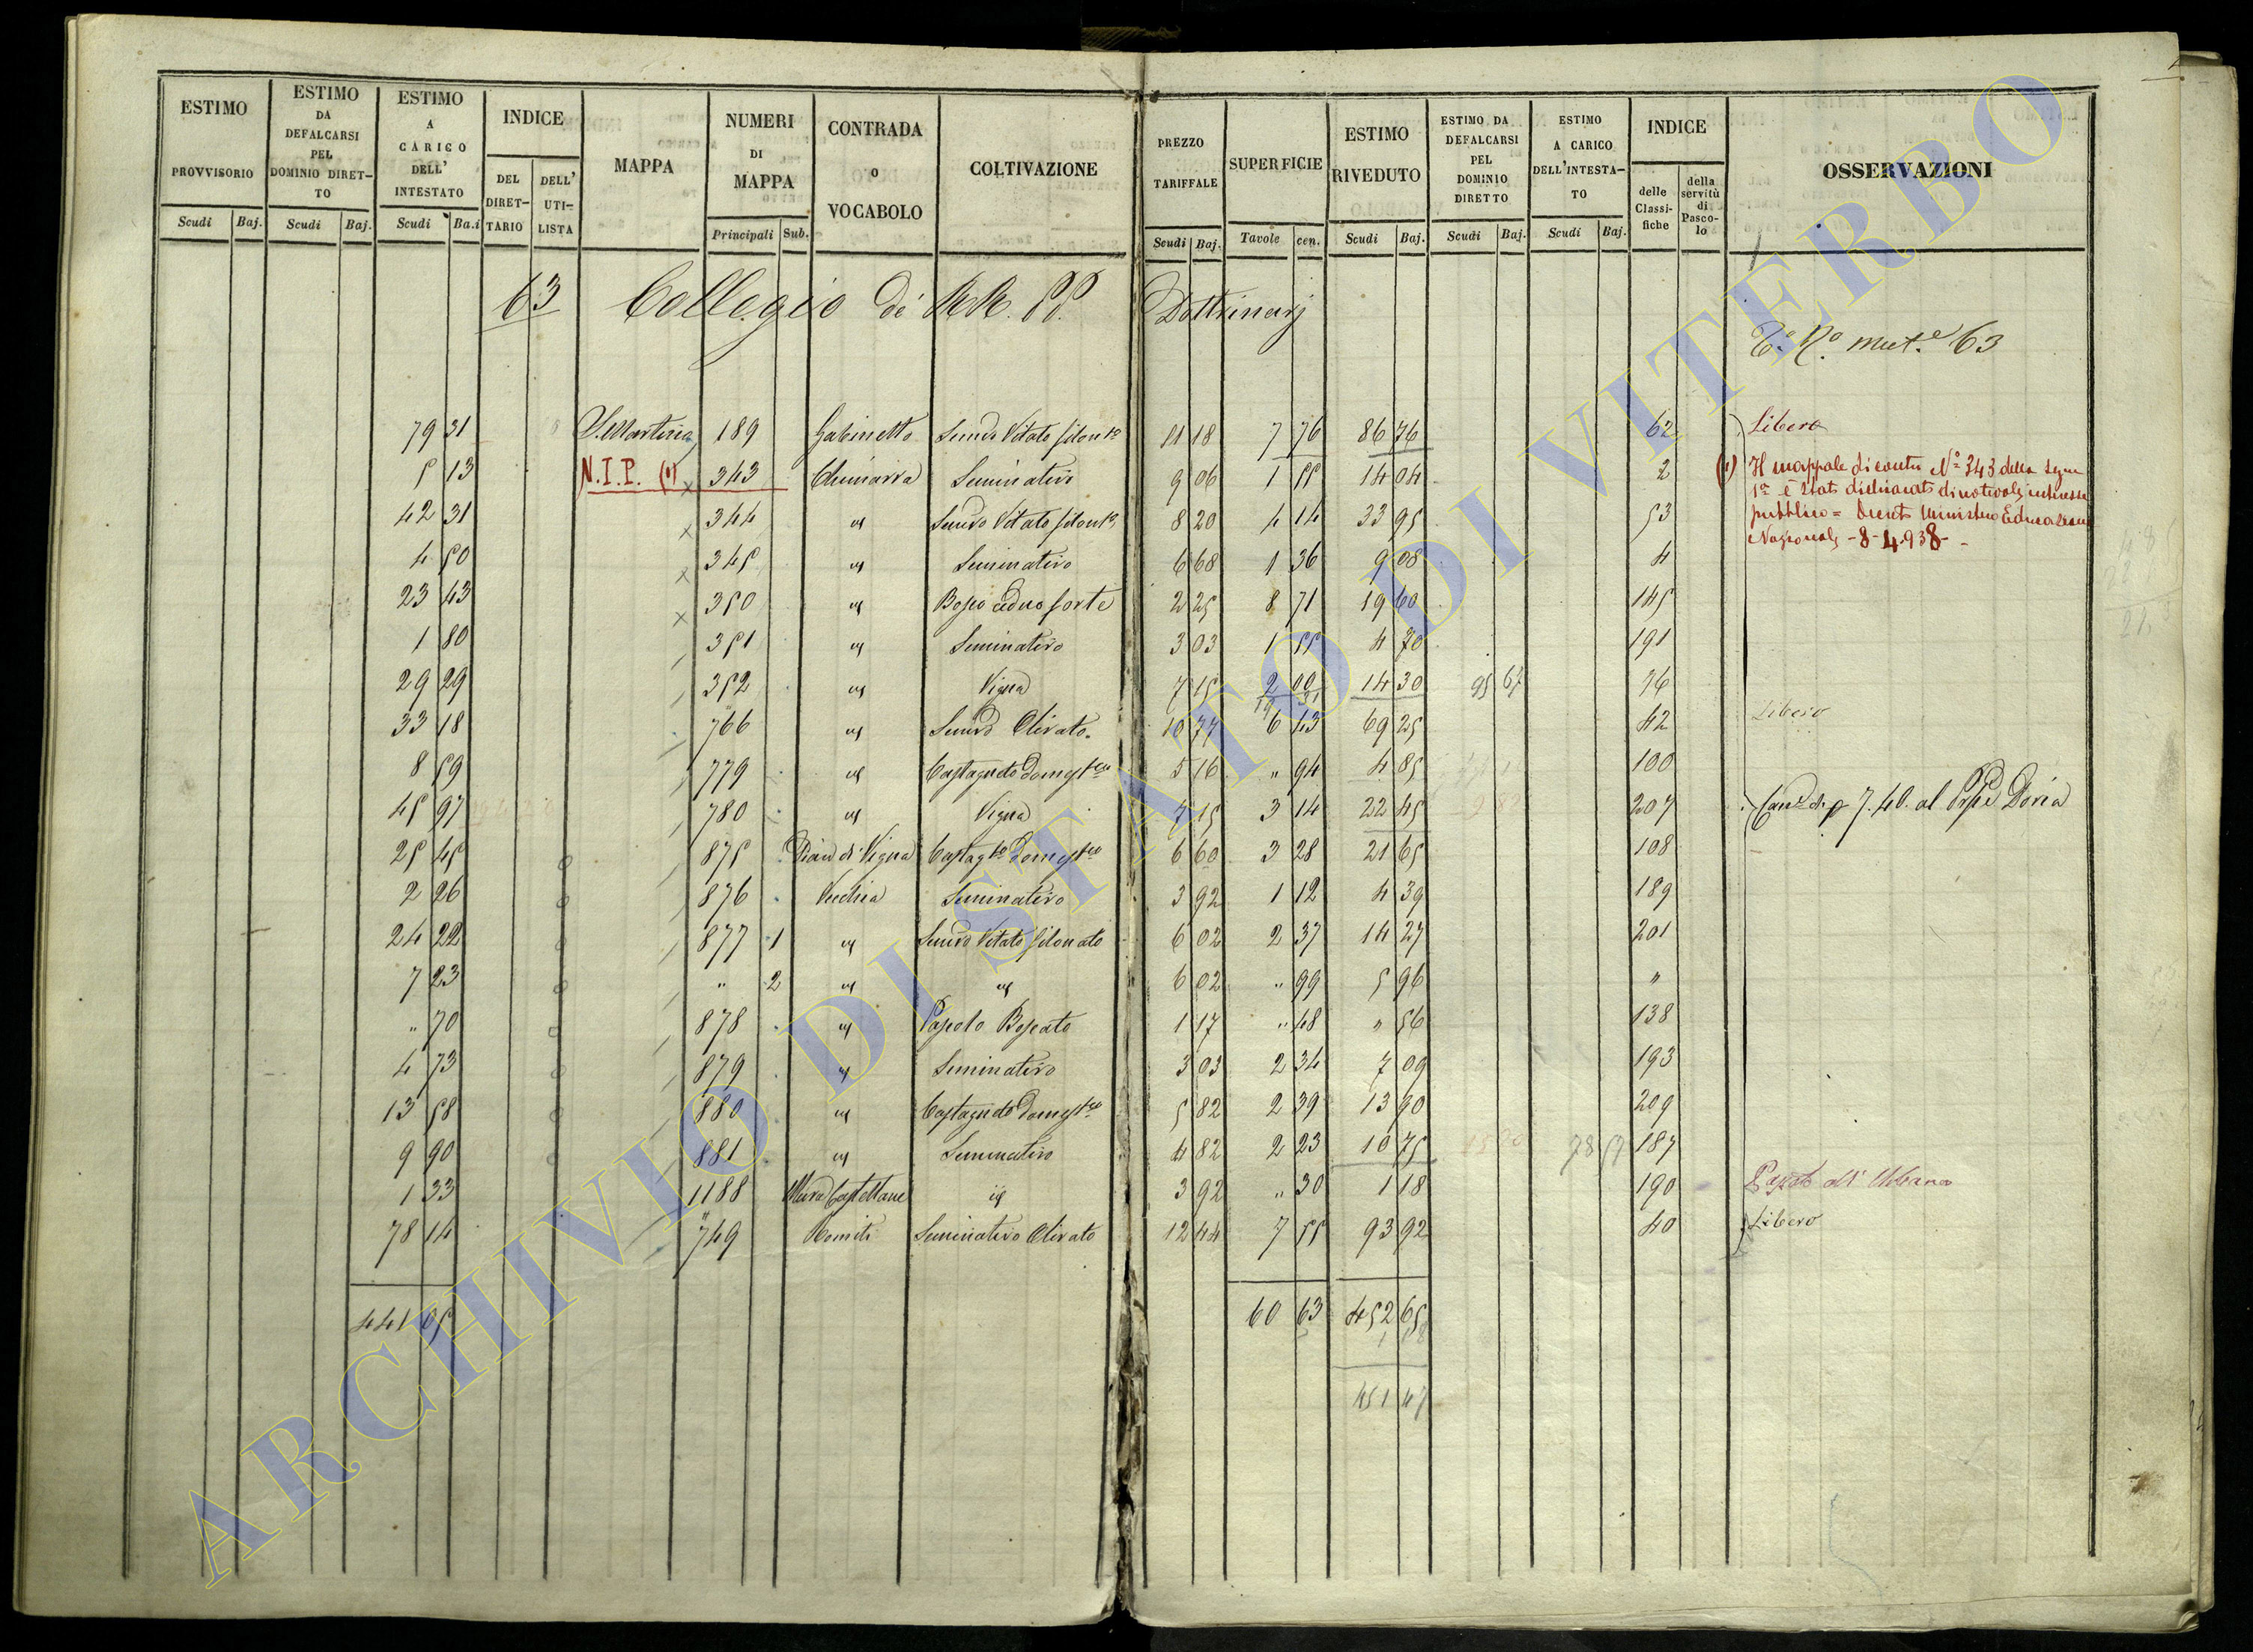 ESTIMO PROVVISORIO
ESTIMO DA DEFALCARSI PEL DOMINIO DIRET-TO
ESTIMO A CARICO DELL' INTESTATO
INDICE
DEL DIRET-TARIO
DELL' UTI-LISTA
MAPPA
NUMERI DI MAPPA
CONTRADA O VOCABOLO
COLTIVAZIONE
PREZZO TARIFFALE
SUPERFICIE
ESTIMO RIVEDUTO
ESTIMO DA DEFALCARSI PEL DOMINIO DIRETTO
ESTIMO A CARICO DELL'INTESTA-TO
INDICE
delle Classi-fiche
della servitù di Pasco-lo
OSSERVAZIONI
Scudi Baj. Scudi Baj. Scudi Ba.i Principali Sub. Scudi Baj. Tavole cen. Scudi Baj. Scudi Baj. Scudi Baj.
63 Collegio di RR. PP. Dottrinarj
N.o mut.e 63
79 31 S. Martino 189 Gabinetto Semvo Vitato 11 18 7 76 86 76 62 Libero
5 13 N.I.P. (1) 343 Chimarra Seminativo 9 06 1 55 14 04 2 (1) Il mappale di contro N.o 343 della sezne
1a è stato dichiarato di notevole interesse
42 31 344 Semvo Vitato 8 20 4 14 33 95 53 pubblico = Decreto Ministero Educazione
Nazionale - 8-4-938 -
4 50 345 Seminativo 6 68 1 36 9 08 4
23 43 350 Bosco ceduo forte 2 25 8 71 19 60 145
1 80 351 Seminativo 3 03 1 55 4 70 191
29 29 352 Vigna 7 15 2 00 14 30 95 67 36
33 18 766 Semvo Olivato 10 77 6 43 69 25 42 Libero
8 59 779 Castagneto Domestco 5 16 " 94 4 85 100
45 97 780 Vigna 7 15 3 14 22 45 207 7.40. al Doria
25 45 875 Piano di Vigna Castagto Domestco 6 60 3 28 21 65 108
2 26 876 Vecchia Seminativo 3 92 1 12 4 39 189
24 22 877 1 Semvo Vitato 6 02 2 37 14 27 201
7 23 " 2 6 02 " 99 5 96 "
" 70 878 Pascolo Boscato 1 17 " 48 " 56 138
4 73 879 Seminativo 3 03 2 34 7 09 193
13 58 880 Castagneto Domestco 5 82 2 39 13 90 209
9 90 881 Seminativo 4 82 2 23 10 75 78 57 187
1 33 1188 Castellane 3 92 " 30 1 18 190
78 14 749 Romiti Seminativo Olivato 12 44 7 55 93 92 40 Libero
441 05 60 63 452 65
451 47
ARCHIVIO DI STATO DI VITERBO